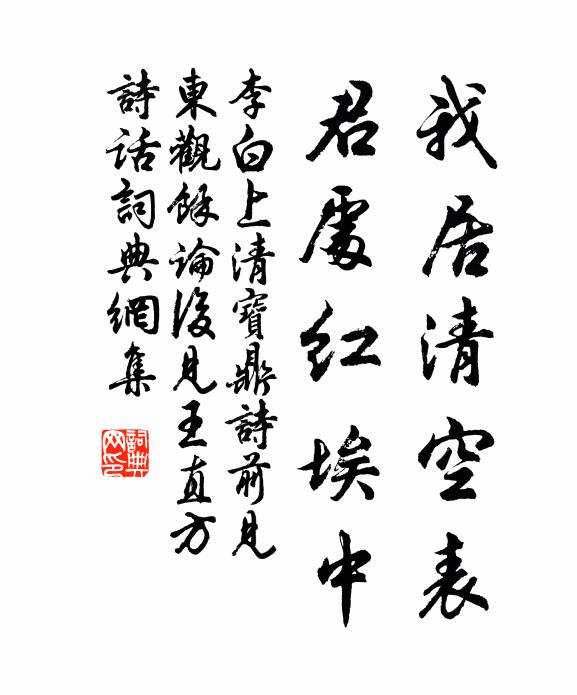 我居清空表
君處紅埃中
李白上清寶鼎詩前見
東觀餘論後見王直方
詩話詞典網集
詞典
网印